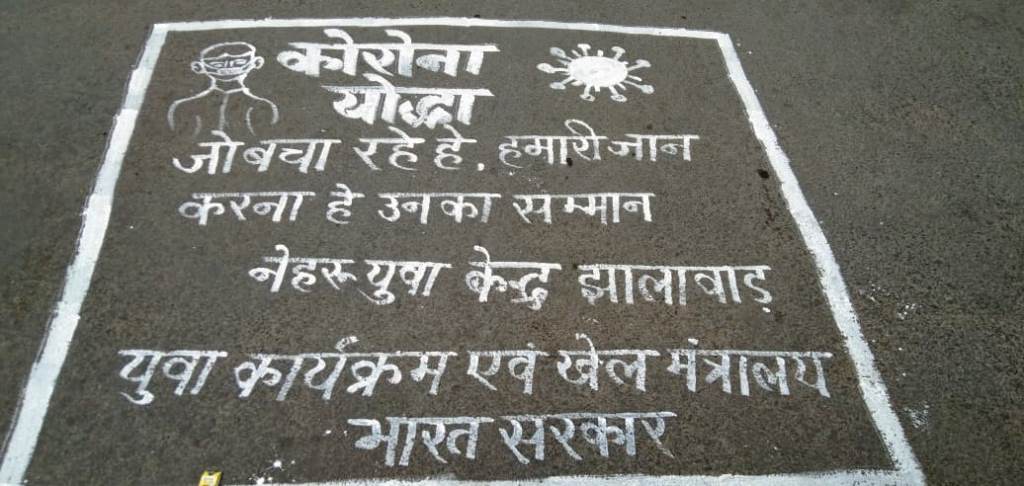 कोरोना
योद्धा
जो बचा रहे हे, हमारी जान
करना हे उनका सम्मान
नेहरू युवा केन्द्र झालावाड
युवा कार्यक्रम एवं खेल मंत्रालय
भारत सरकार